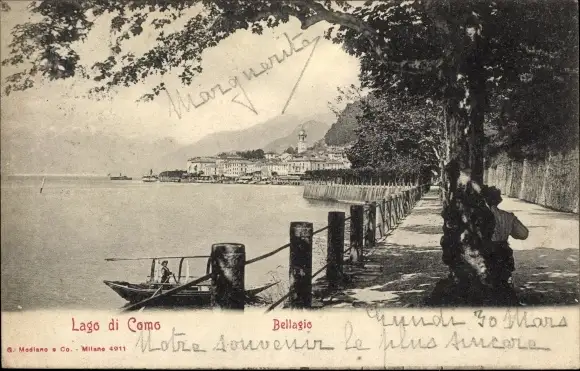 Marguerite
Lago di Como
Bellagio
Lundi 30 Mars
G. Modiano e Co. - Milano 4911
Notre souvenir le plus sincère